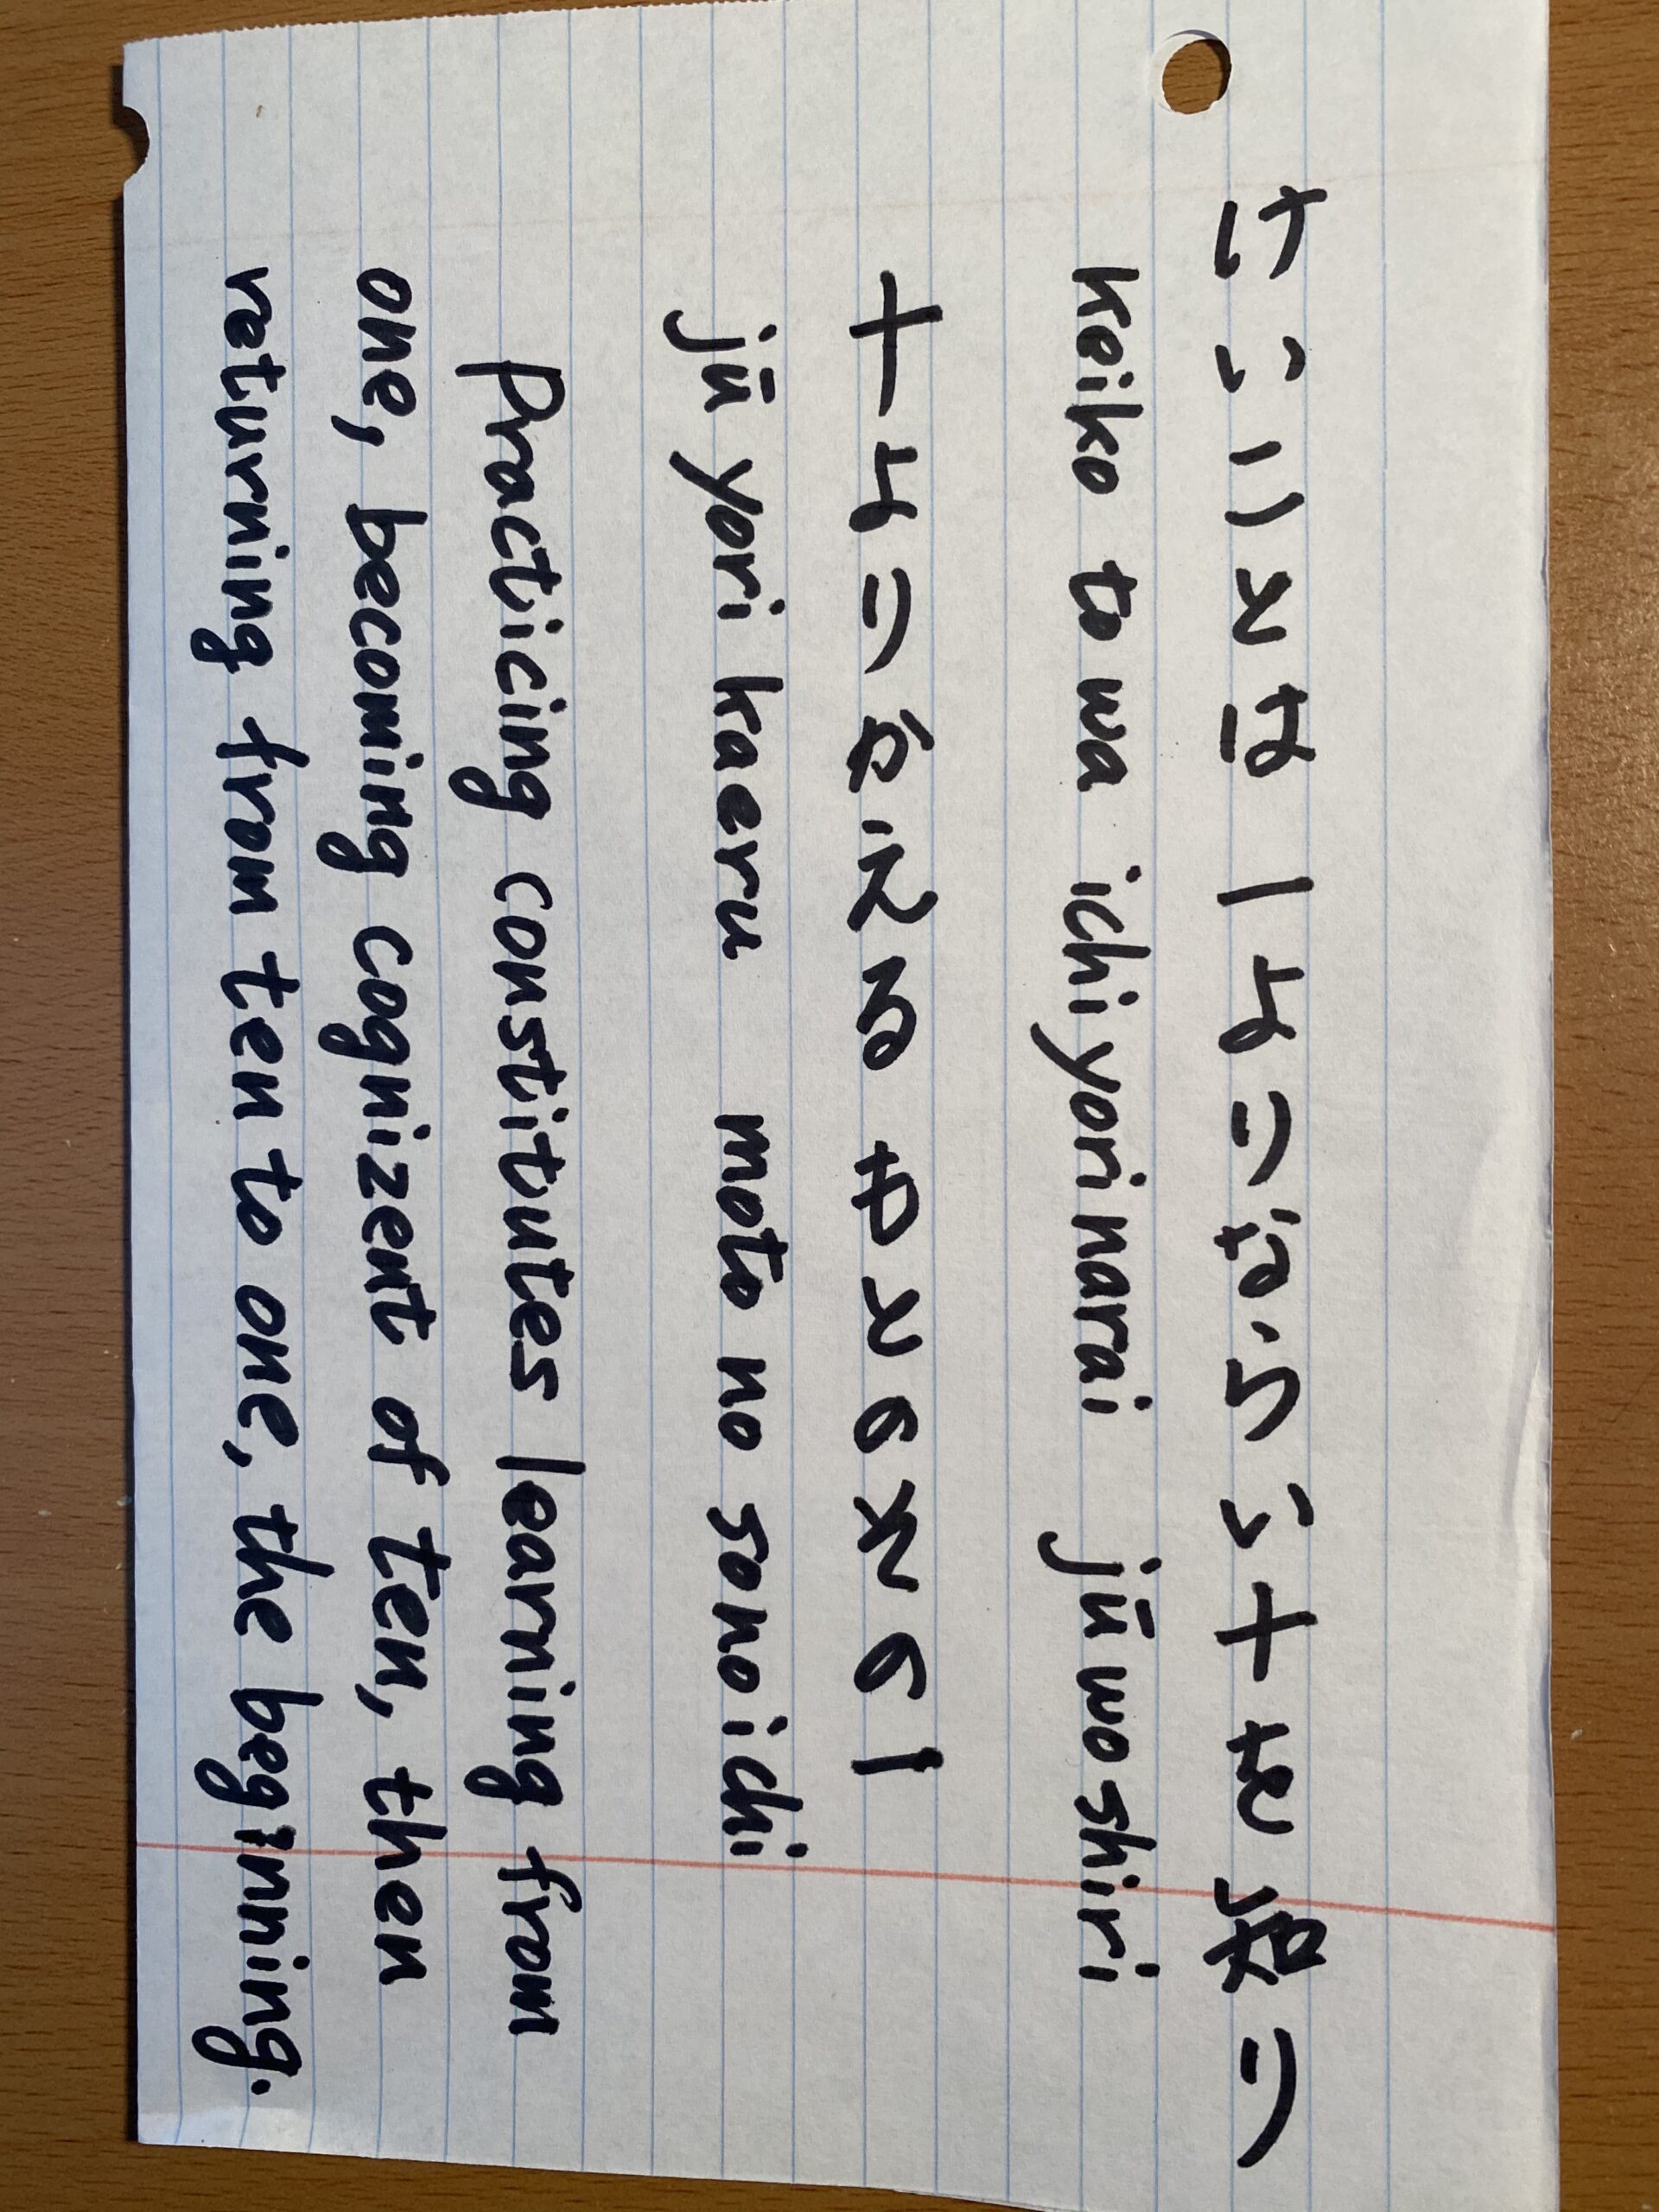 けいことは一よりならい十を識り
keiko to wa ichi yori narai jū wo shiri
十よりかえるもとのその一
jū yori kaeru moto no sono ichi
Practicing constitutes learning from
one, becoming cognizent of ten, then
returning from ten to one, the beginning.